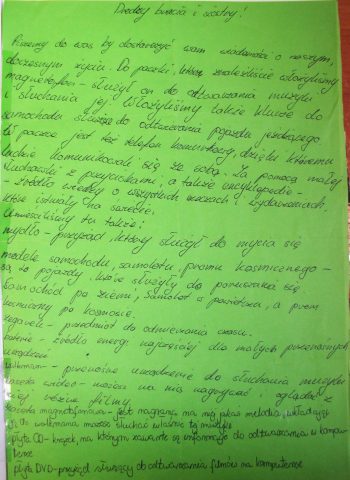 Drodzy bracia i siostry!
Piszemy do was by dostarczyć wam wiadomości o naszym,
doczesnym życiu. Do paczki, którą znaleźliście włożyliśmy
magnetofon - służył on do odtwarzania muzyki
i słuchania jej. Włożyliśmy także klucze do
samochodu służące do odtwierania pojazdu jeżdżącego
W paczce jest też telefon komórkowy, dzięki któremu
ludzie komunikowali się ze sobą, za pomocą małej
słuchawki z przyciskami, a także encyklopedie -
- źródło wiedzy o wszystkich rzeczach i wydarzeniach,
które istniały na świecie.
Umieściliśmy tu także:
mydło - przyrząd, który służył do mycia się
modele samochodu, samolotu, promu kosmicznego -
są to pojazdy, które służyły do poruszania się.
Samochód po ziemi, samolot w powietrzu, a prom
kosmiczny po kosmosie.
zegarek - przedmiot do odmierzania czasu.
baterie - źródło energii najczęściej dla małych przenośnych
urządzeń
walkman - przenośne urządzenie do słuchania muzyki
kaseta wideo - można na nią nagrywać, oglądać z
niej różne filmy.
kaseta magnetofonowa - jest nagrana na niej jakaś melodia, wkładając
ją do walkmana możesz słuchać właśnie tą muzykę
płyta CD - krążek, na którym zawarte są informacje do odtwarzania w kompu-
terze
płyta DVD - przyrząd służący do odtwarzania filmów na komputerze